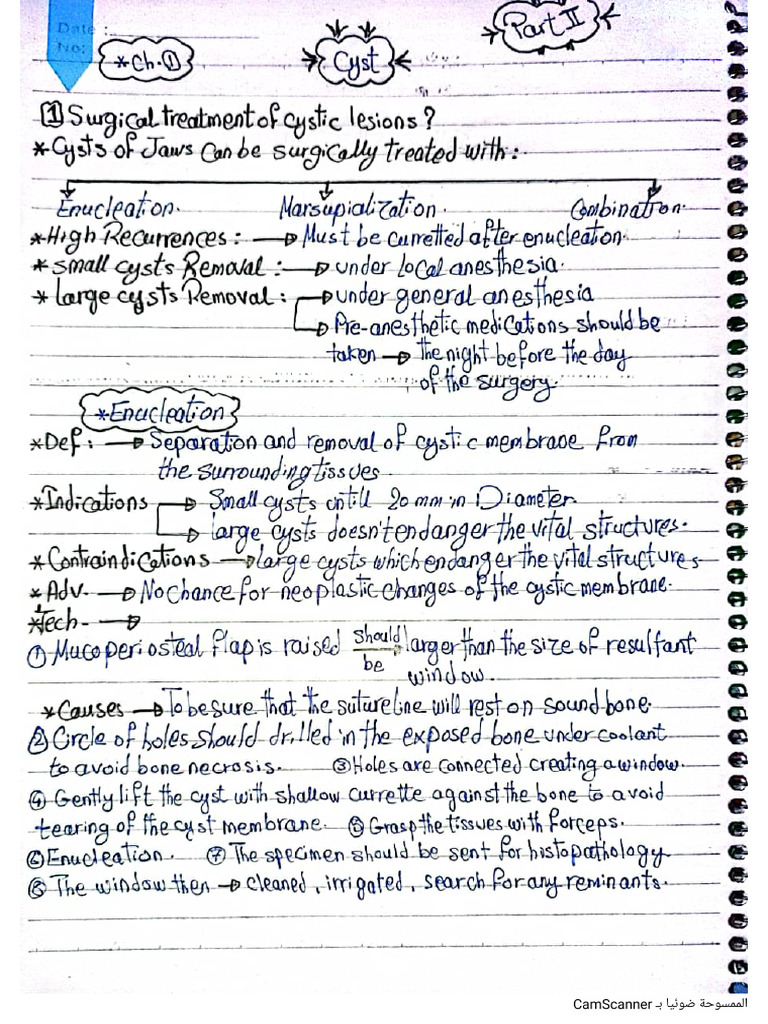 Date:
No:
Part II
*Ch.①
Cyst
1 Surgical treatment of cystic lesions?
*Cysts of Jaws can be surgically treated with:
Enucleation. Marsupialization. Combination.
*High Recurrences: → Must be curretted after enucleation.
*small cysts Removal: → under local anesthesia.
*Large cysts Removal: → under general anesthesia
→ Pre-anesthetic medications should be
taken → the night before the day
of the surgery.
*Enucleation
*Def: → Separation and removal of cystic membrane from
the surrounding tissues.
*Indications → Small cysts untill 20 mm in Diameter.
→ large cysts doesn't endanger the vital structures.
*Contraindications → large cysts which endanger the vital structures
*Adv. → No chance for neoplastic changes of the cystic membrane.
*Tech. →
① Mucoperiosteal flap is raised should be larger than the size of resultant
window.
*Causes → To be sure that the suture line will rest on sound bone.
② Circle of holes should drilled in the exposed bone under coolant
to avoid bone necrosis. ③ Holes are connected creating a window.
④ Gently lift the cyst with shallow currette against the bone to avoid
tearing of the cyst membrane. ⑤ Grasp the tissues with forceps.
⑥ Enucleation. ⑦ The specimen should be sent for histopathology
⑧ The window then → cleaned, irrigated, search for any reminants.
الممسوحة ضوئيا بـ CamScanner